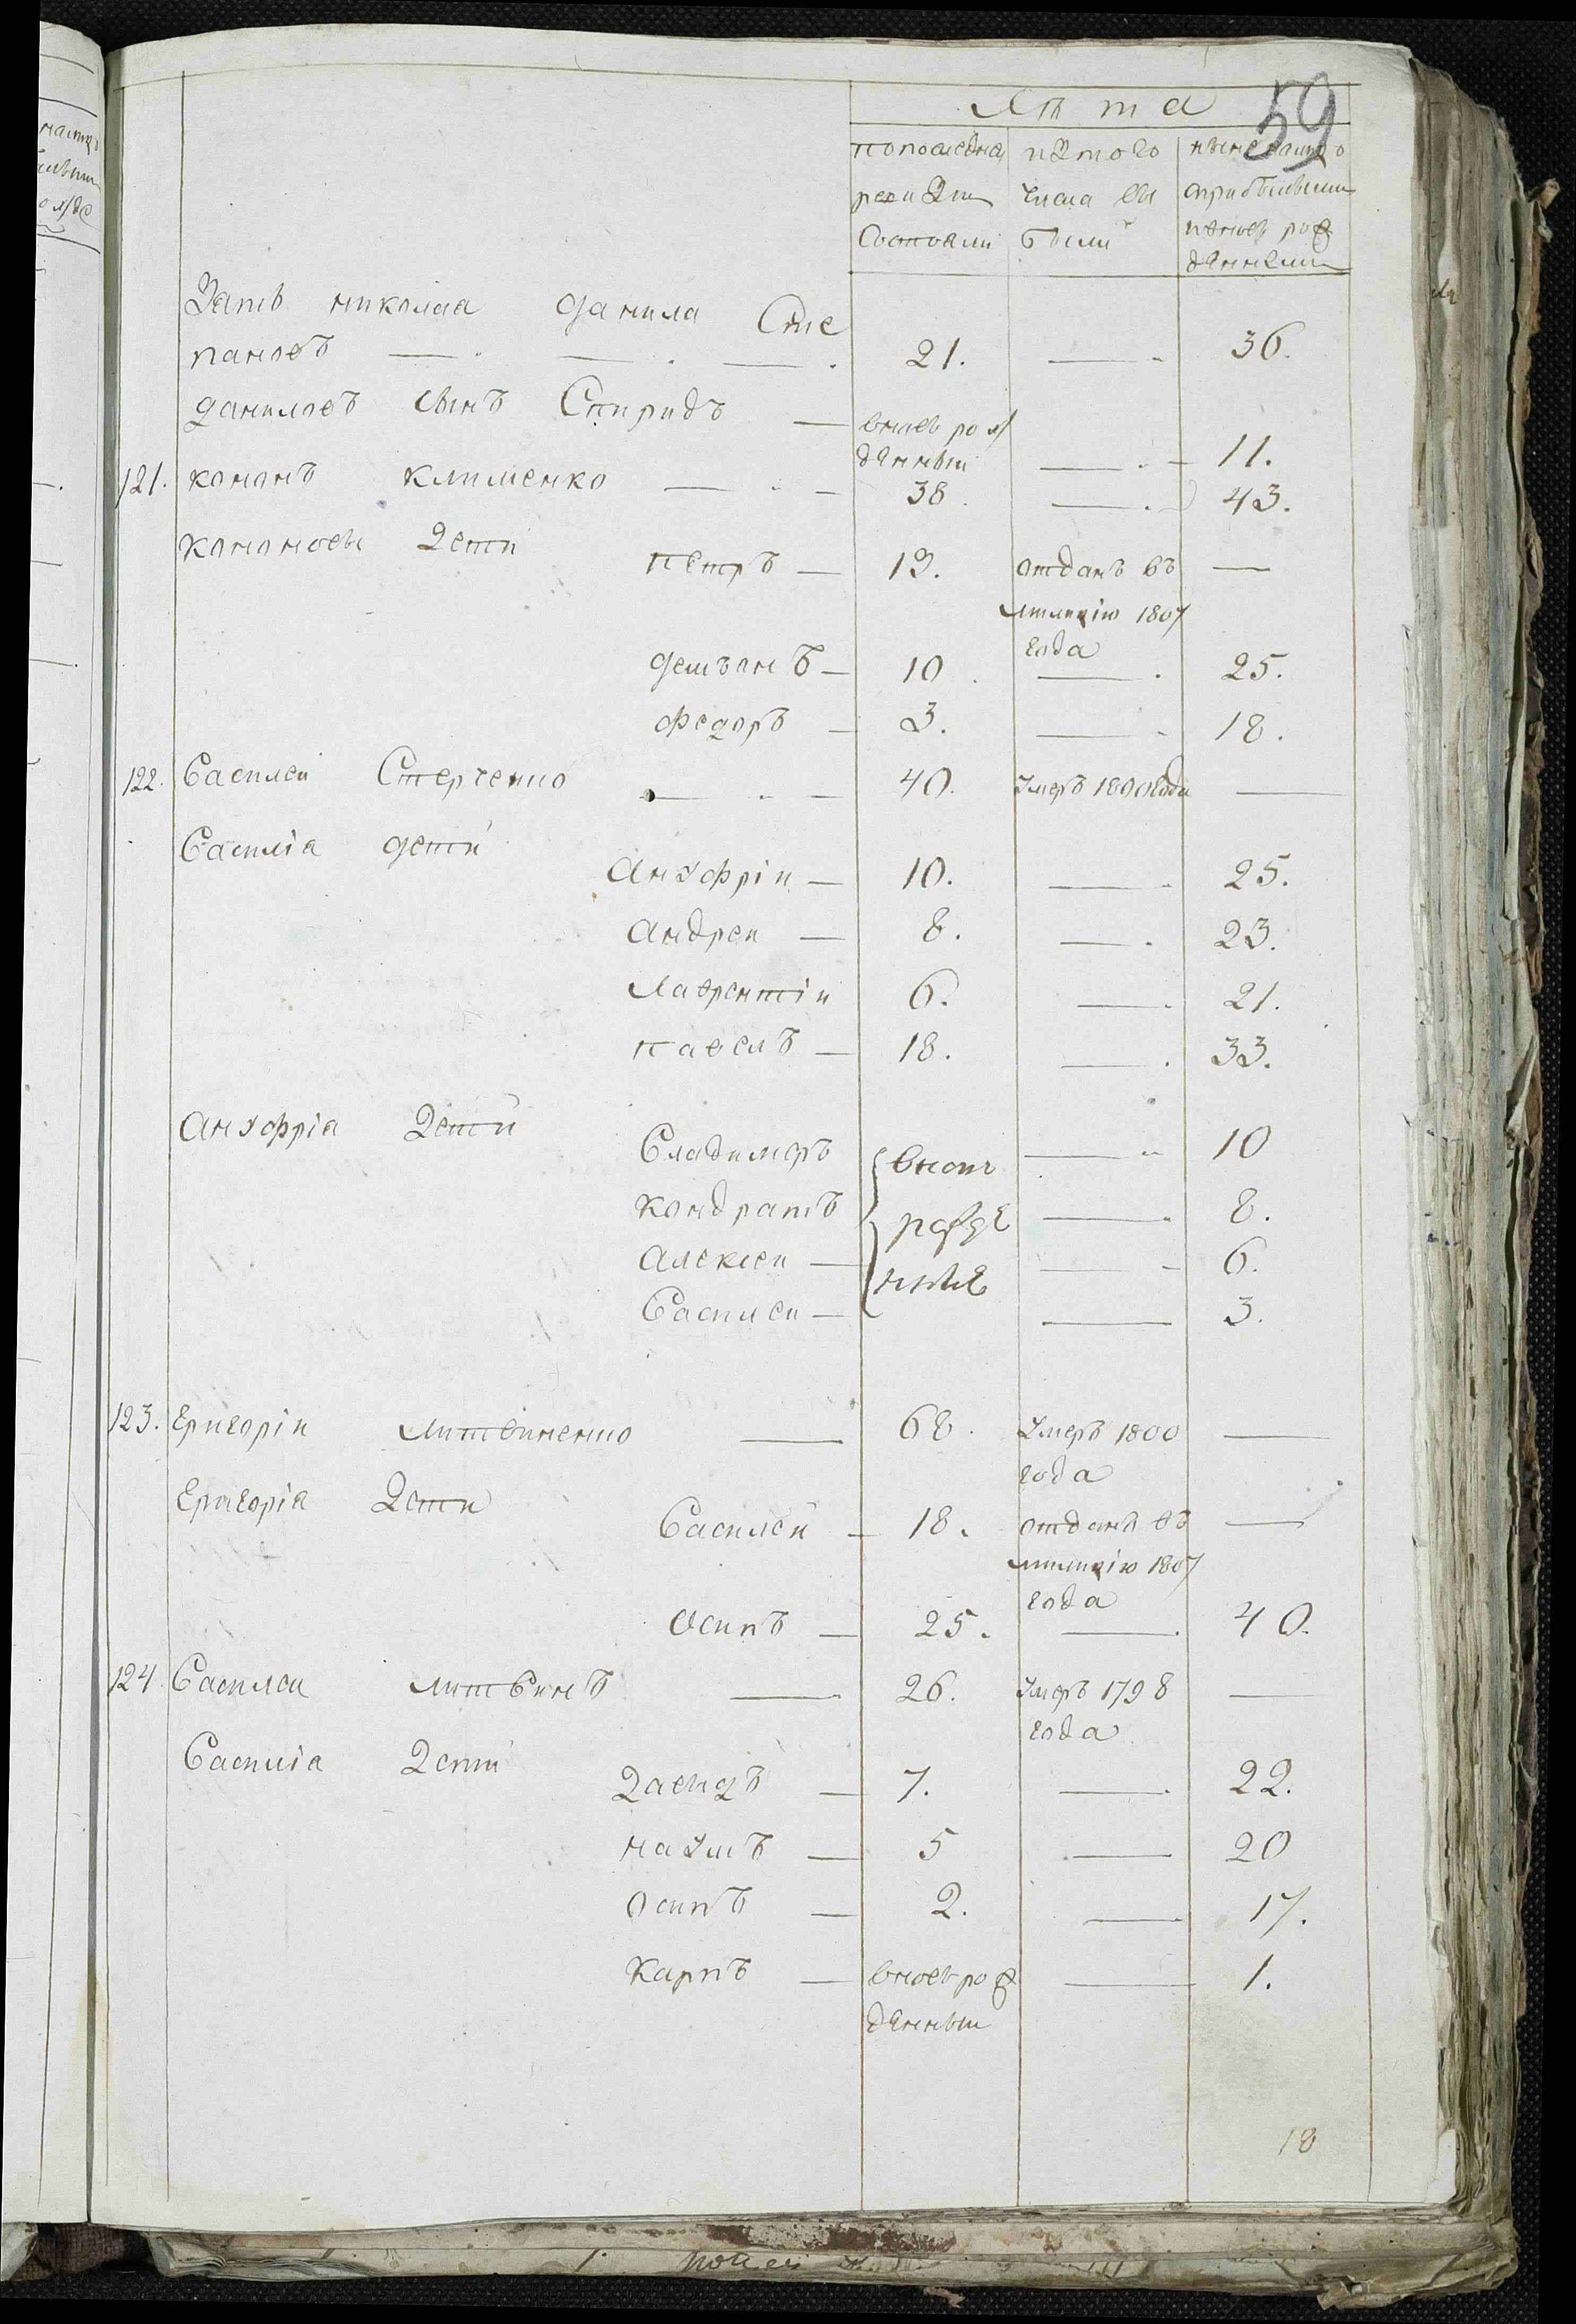 59
Лѣта
попоследнеи ревизіи Состояли
изтого числа вы были
ныне налицо сприбылыми вновь рожденными
Зять николая Данила Сте
пановъ — 21. — 36.
Даниловъ сынъ Спиридъ — вновь рож
денныи — 11.
121. кононъ клименко — 38. — 43.
кононовы дети петръ — 19. отданъ въ —
милицію 1807
года
Демьянъ — 10 — 25.
Федоръ — 3. — 18.
122. Василеи Стерченко — 40. Умеръ 1800 года —
Василіа дети
Ануфріи — 10. — 25.
Андреи — 8. — 23.
Лаврентіи 6. — 21.
павелъ — 18. — 33.
Ануфріа дети
Владимеръ вновь — 10
Кондратъ рожде — 8.
Алексеи — нные — 6.
Василеи — 3.
123. Григоріи Литвиненко — 68. Умеръ 1800 —
года
Григоріа дети
Василеи — 18. отданъ въ —
милицію 1807
года
Осипъ — 25. — 40.
124. Василеи литвинъ — 26. Умеръ 1798 —
года
Василіа дети
Давидъ — 7. — 22.
наумъ — 5 — 20
Осипъ — 2. — 17.
Карпъ — вновь рож — 1.
денныи
18